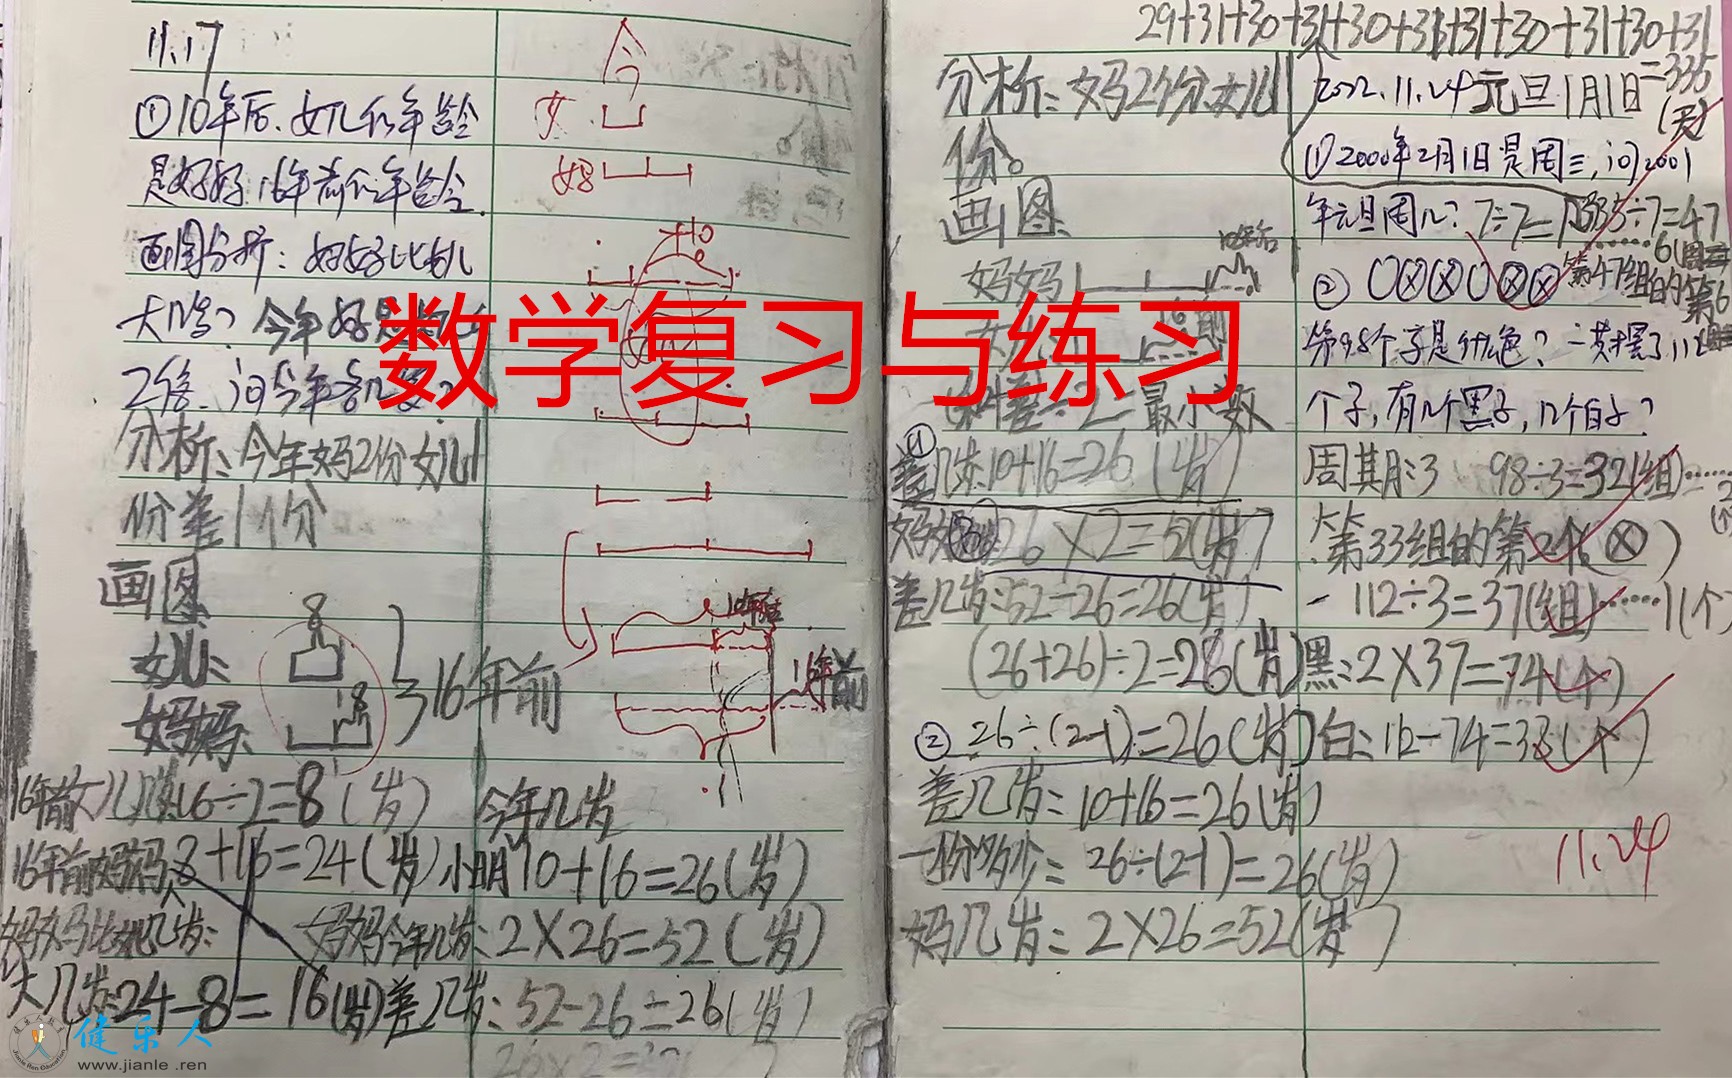 11.17
①10年后、女儿的年龄
是妈妈16年前的年龄.
画图分析：妈妈比女儿
大几岁？今年妈
2倍、问今年各几岁？
分析：今年妈2份女儿1
份差1份
画图
女儿：
8
妈妈：
8
16年前
16年前女儿几岁16÷2=8（岁）
16年前妈妈8+16=24（岁）
妈妈比她几岁：
大几岁：24-8=16（岁）
今
女
妈
+10
10年后
16年前
今年几岁
小明10+16=26（岁）
妈妈今年几岁：2×26=52（岁）
差几岁：52-26=26（岁）
数学复习与练习
分析：妈2份女儿1
份。
画图
10年后
妈妈
最小数
①
差几岁：10+16=26（岁）
26×2=52（岁）
差几岁：52-26=26（岁）
(26+26)÷2=26（岁）
② 26÷(2-1)=26（岁）
差几岁：10+16=26（岁）
一份多少：26÷(2-1)=26（岁）
妈几岁：2×26=52（岁）
29+31+30+31+30+31+31+30+31+30+31
=335
（天）
2022.11.24元旦1月1日
①2000年2月1日是周三，问2001
年元旦周几？7÷7=1 335÷7=47
……6（周
第47组的第6
②○⊗⊗○⊗⊗
第98个子是什么色？一共摆了112
个子，有几个黑子，几个白子？
周期：3 98÷3=32（组）……2
第33组的第2个（⊗）
112÷3=37（组）……1（个）
黑：2×37=74（个）
白：112-74=38（个）
11.24
健乐人
www.jianle.ren